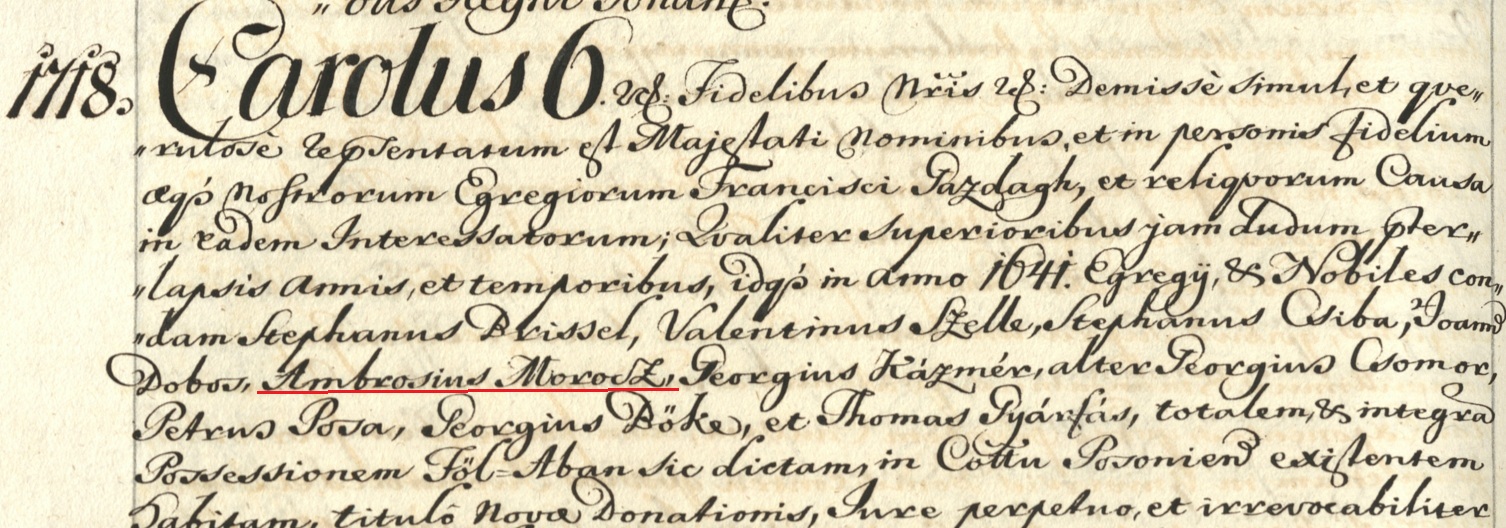 „bus Regni
1718. Carolus 6. &: Fidelibus Nrīs &: Demissè simul, et que„
„rulosè repsentatum est Majestati Nominibus, et in personis fidelium
æqȝ Nostrorum Egregiorum Francisci Gazdagh, et reliqvorum Causa
in eadem Interessatorum; Qvaliter superioribus jam dudum pter„
„lapsis Annis, et temporibus, idqȝ in Anno 1641. Egregÿ, & Nobiles con„
„dam Stephanus Brissel, Valentinus Szelle, Stephanus Csiba, Joannes
Dobos, Ambrosius Morocz, Georgius Kázmér, alter Georgius Csomor,
Petrus Posa, Georgius Böke, et Thomas Gyárfás, totalem, & integrā
Possessionem Föl=Aban sic dictam, in Cottu Posonien existentem
Habitam, titulô Novæ Donationis, Jure perpetuo, et irrevocabiliter